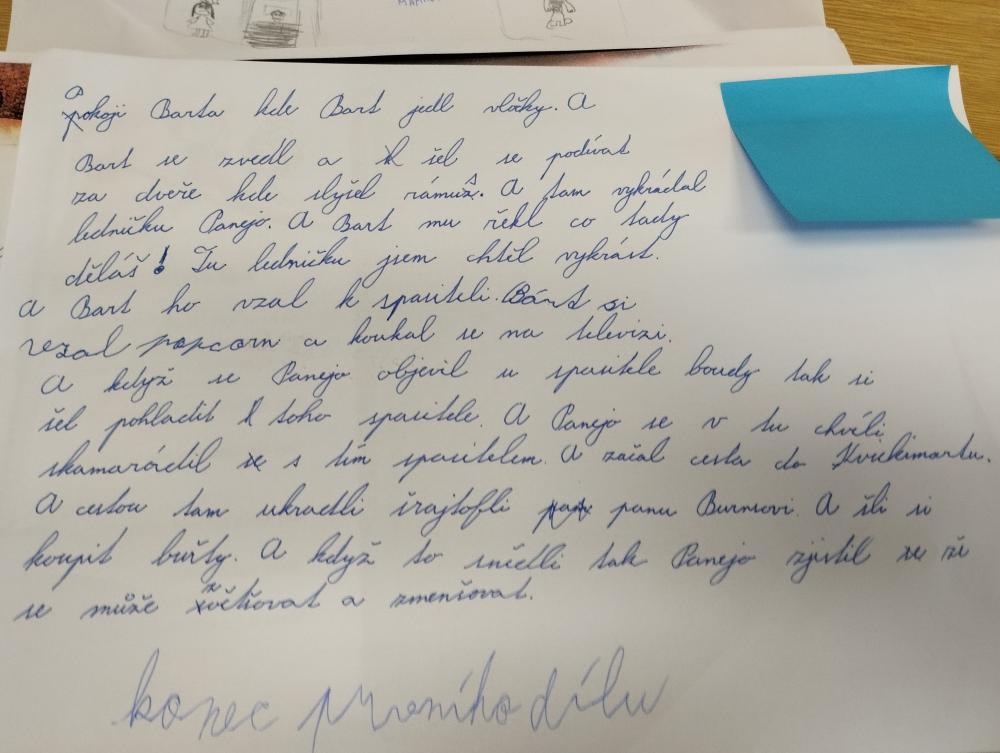 pokoji Barta kde Bart jedl vločky. A
Bart se zvedl a šel se podívat
za dveře kde slyšel rámus. A tam vykrádal
ledničku Panejo. A Bart mu řekl co tady
děláš! Tu ledničku jsem chtěl vykrást.
A Bart ho vzal k spasiteli. Bárt si
vzal popcorn a koukal se na televizi.
A když se Panejo objevil u spasitele boudy tak si
šel pohladit toho spasitele. A Panejo se v tu chvíli
skamarádil s tím spasitelem. A začal cesta do Kvickimartu.
A cestou tam ukradli šrajtofli panu Burnsovi. A šli si
koupit buřty. A když to snědli tak Panejo zjistil že
se může zvětšovat a zmenšovat.
konec prvního dílu